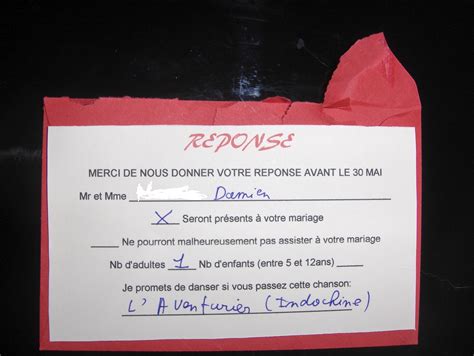 REPONSE
MERCI DE NOUS DONNER VOTRE REPONSE AVANT LE 30 MAI
Mr et Mme Damien
X Seront présents à votre mariage
Ne pourront malheureusement pas assister à votre mariage
Nb d'adultes 1 Nb d'enfants (entre 5 et 12ans)
Je promets de danser si vous passez cette chanson:
L'Aventurier (Indochine)